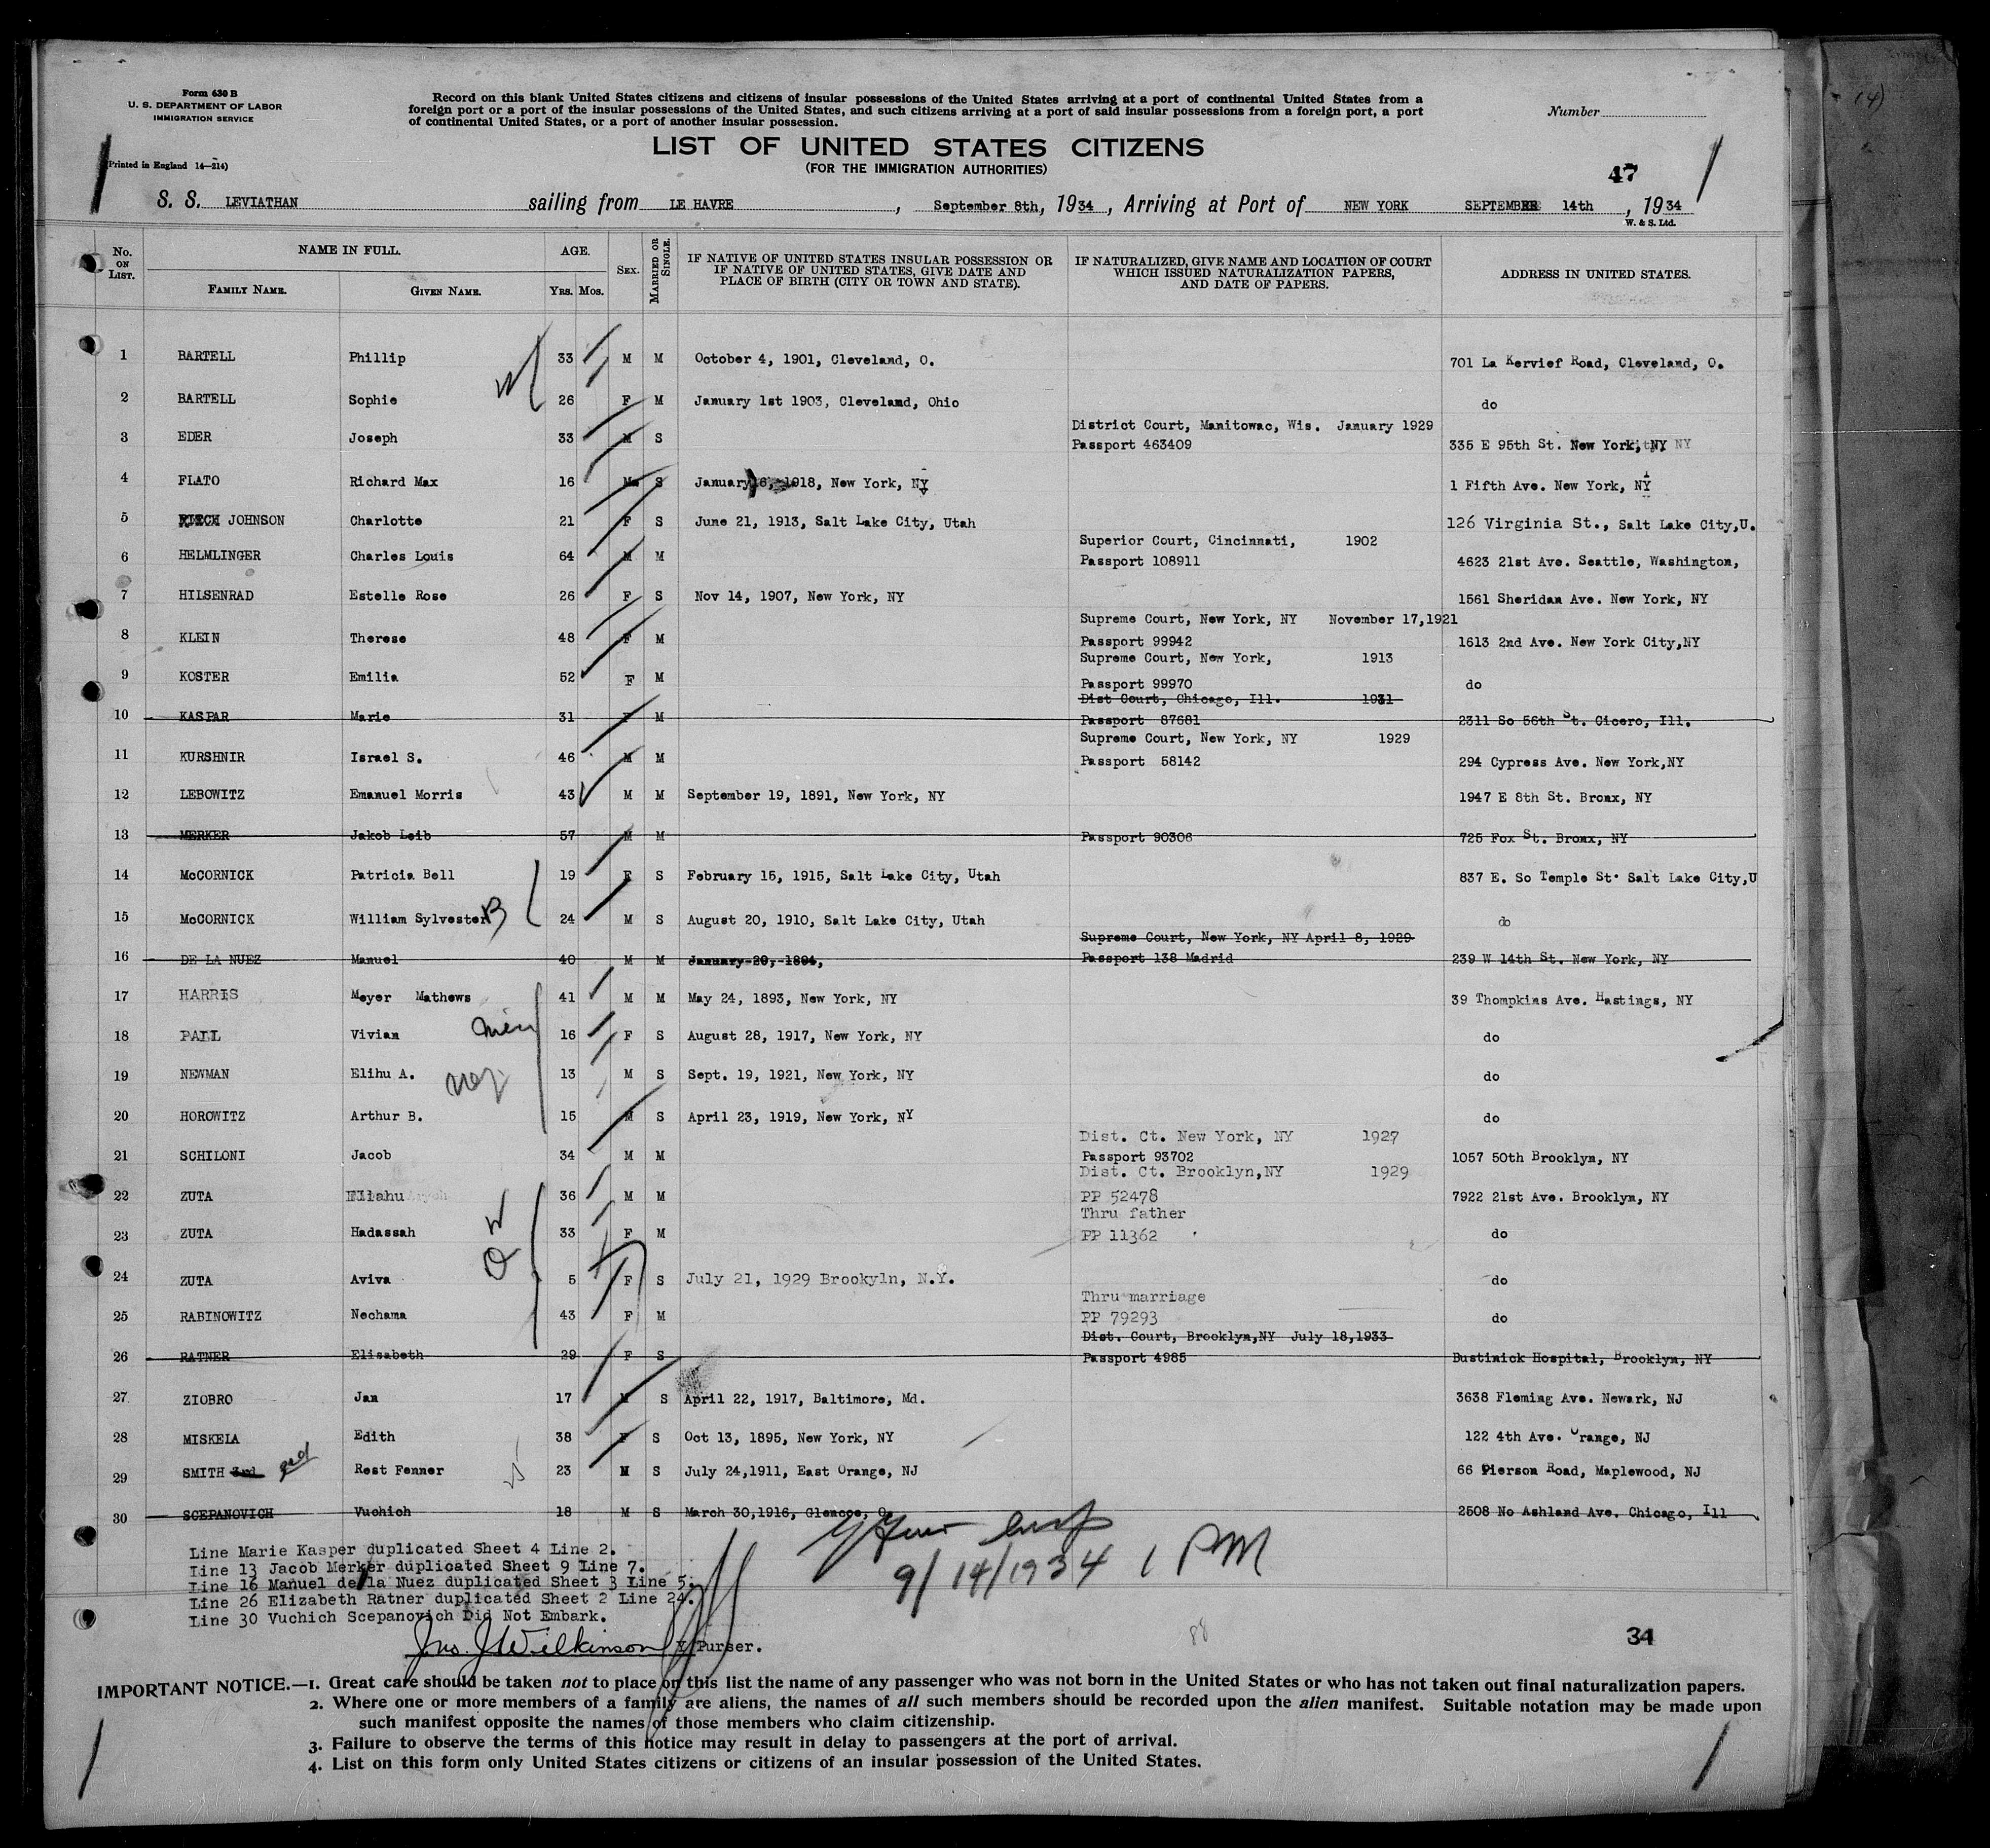 Form 630 B
U. S. DEPARTMENT OF LABOR
IMMIGRATION SERVICE
Printed in England 14—214)
Record on this blank United States citizens and citizens of insular possessions of the United States arriving at a port of continental United States from a
foreign port or a port of the insular possessions of the United States, and such citizens arriving at a port of said insular possessions from a foreign port, a port
of continental United States, or a port of another insular possession.
Number
LIST OF UNITED STATES CITIZENS
(FOR THE IMMIGRATION AUTHORITIES)
47
S. S. LEVIATHAN sailing from LE HAVRE, September 8th, 1934, Arriving at Port of NEW YORK SEPTEMBER 14th, 1934
W. & S. Ltd.
No. ON LIST. NAME IN FULL. FAMILY NAME. GIVEN NAME. AGE. YRS. MOS. SEX. MARRIED OR SINGLE. IF NATIVE OF UNITED STATES INSULAR POSSESSION OR IF NATIVE OF UNITED STATES, GIVE DATE AND PLACE OF BIRTH (CITY OR TOWN AND STATE). IF NATURALIZED, GIVE NAME AND LOCATION OF COURT WHICH ISSUED NATURALIZATION PAPERS, AND DATE OF PAPERS. ADDRESS IN UNITED STATES.
1 BARTELL Phillip 33 M M October 4, 1901, Cleveland, O. 701 La Kervief Road, Cleveland, O.
2 BARTELL Sophie 26 F M January 1st 1903, Cleveland, Ohio do
District Court, Manitowac, Wis. January 1929
3 EDER Joseph 33 M S Passport 463409 335 E 95th St. New York, NY
4 FLATO Richard Max 16 M S January 6, 1918, New York, NY 1 Fifth Ave. New York, NY
5 JOHNSON Charlotte 21 F S June 21, 1913, Salt Lake City, Utah 126 Virginia St., Salt Lake City,U.
Superior Court, Cincinnati, 1902
6 HELMLINGER Charles Louis 64 M M Passport 108911 4623 21st Ave. Seattle, Washington,
7 HILSENRAD Estelle Rose 26 F S Nov 14, 1907, New York, NY 1561 Sheridan Ave. New York, NY
Supreme Court, New York, NY November 17,1921
8 KLEIN Therese 48 F M Passport 99942 1613 2nd Ave. New York City,NY
Supreme Court, New York, 1913
9 KOSTER Emilia 52 F M Passport 99970 do
Dist Court, Chicago, Ill. 1931
10 KASPAR Marie 31 F M Passport 87681 2311 So 56th St. Cicero, Ill.
Supreme Court, New York, NY 1929
11 KURSHNIR Israel S. 46 M M Passport 58142 294 Cypress Ave. New York,NY
12 LEBOWITZ Emanuel Morris 43 M M September 19, 1891, New York, NY 1947 E 8th St. Bronx, NY
13 MERKER Jakob Leib 57 M M Passport 90306 725 Fox St. Bronx, NY
14 McCORNICK Patricia Bell 19 F S February 15, 1915, Salt Lake City, Utah 837 E. So Temple St. Salt Lake City,U
15 McCORNICK William Sylvester 24 M S August 20, 1910, Salt Lake City, Utah do
Supreme Court, New York, NY April 8, 1929
16 DE LA NUEZ Manuel 40 M M January 20, 1894, Passport 138 Madrid 239 W 14th St. New York, NY
17 HARRIS Meyer Mathews 41 M M May 24, 1893, New York, NY 39 Thompkins Ave. Hastings, NY
18 PALL Vivian 16 F S August 28, 1917, New York, NY do
19 NEWMAN Elihu A. 13 M S Sept. 19, 1921, New York, NY do
20 HOROWITZ Arthur B. 15 M S April 23, 1919, New York, NY do
Dist. Ct. New York, NY 1927
21 SCHILONI Jacob 34 M M Passport 93702 1057 50th Brooklyn, NY
Dist. Ct. Brooklyn,NY 1929
22 ZUTA Eliahu 36 M M PP 52478 7922 21st Ave. Brooklyn, NY
Thru father
23 ZUTA Hadassah 33 F M PP 11362 do
24 ZUTA Aviva 5 F S July 21, 1929 Brookyln, N.Y. do
Thru marriage
25 RABINOWITZ Nechama 43 F M PP 79293 do
Dist. Court, Brooklyn,NY July 18,1933
26 RATNER Elisabeth 29 F S Passport 4985 Bustinick Hospital, Brooklyn, NY
27 ZIOBRO Jan 17 M S April 22, 1917, Baltimore, Md. 3638 Fleming Ave. Newark, NJ
28 MISKELA Edith 38 F S Oct 13, 1895, New York, NY 122 4th Ave. Orange, NJ
29 SMITH 3rd Rest Fenner 23 M S July 24,1911, East Orange, NJ 66 Pierson Road, Maplewood, NJ
30 SCEPANOVICH Vuchich 18 M S March 30,1916, Glencoe, O. 2508 No Ashland Ave. Chicago, Ill
Line Marie Kasper duplicated Sheet 4 Line 2.
Line 13 Jacob Merker duplicated Sheet 9 Line 7.
Line 16 Manuel de la Nuez duplicated Sheet 3 Line 5.
Line 26 Elizabeth Ratner duplicated Sheet 2 Line 24.
Line 30 Vuchich Scepanovich Did Not Embark.
9/14/1934 1 PM
Jno. J Wilkinson Purser.
88
34
IMPORTANT NOTICE.—1. Great care should be taken not to place on this list the name of any passenger who was not born in the United States or who has not taken out final naturalization papers.
2. Where one or more members of a family are aliens, the names of all such members should be recorded upon the alien manifest. Suitable notation may be made upon
such manifest opposite the names of those members who claim citizenship.
3. Failure to observe the terms of this notice may result in delay to passengers at the port of arrival.
4. List on this form only United States citizens or citizens of an insular possession of the United States.